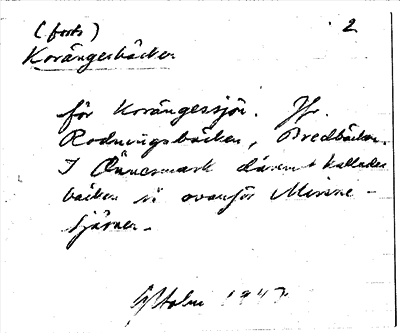 (forts)
2
Korängesbäcken
för Korängessjön. Jfr.
Rodningsbäcken, Bredbäcken.
I Önnesmark däremot kallades
bäcken så ovanför Minne-
tjärnen.
Holm 1947